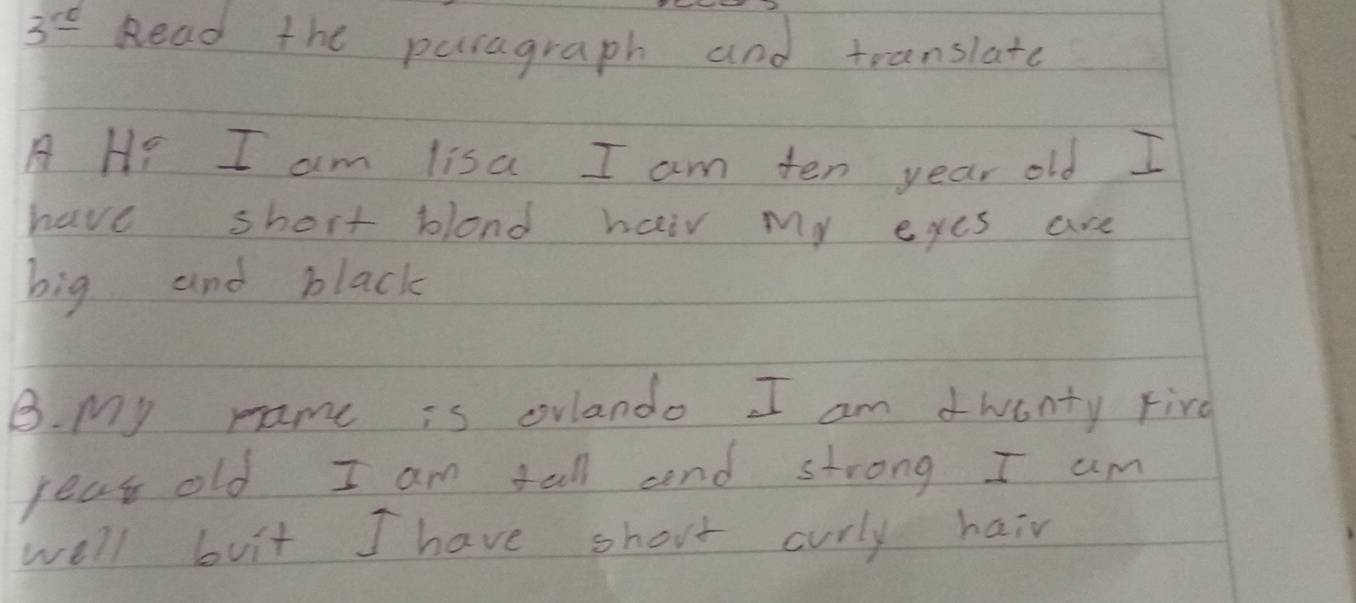 3rd Read the paragraph and translate
A Hi I am lisa I am ten year old I
have short blond hair My eyes are
big and black
B. My name is orlando I am twenty five
year old I am tall and strong I am
well buit I have short curly hair